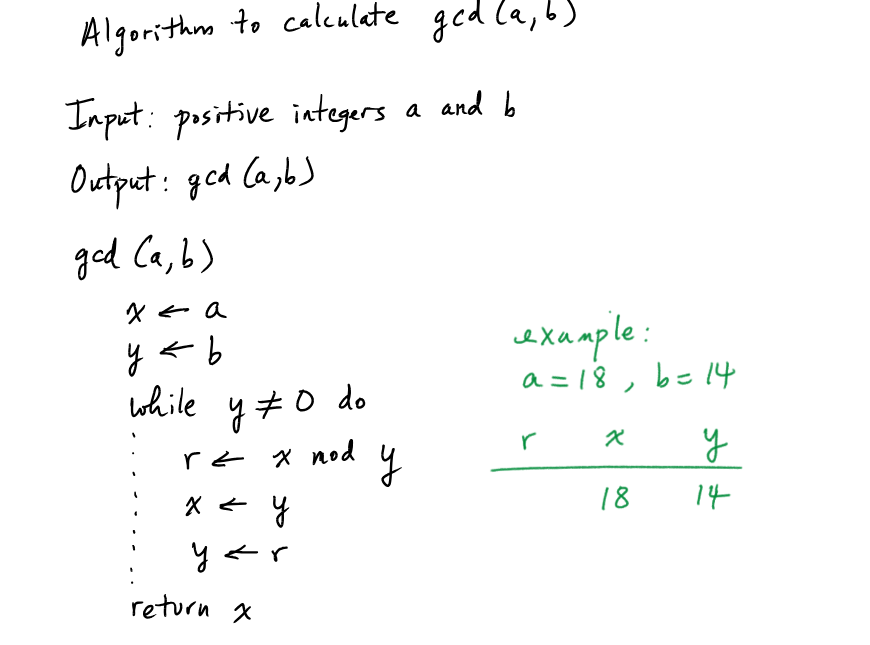 Algorithm to calculate gcd (a,b)
Input: positive integers a and b
Output: gcd (a,b)
gcd (a,b)
x ← a
y ← b
while y ≠ 0 do
r ← x mod y
x ← y
y ← r
return x
example:
a = 18 , b = 14
r x y
18 14